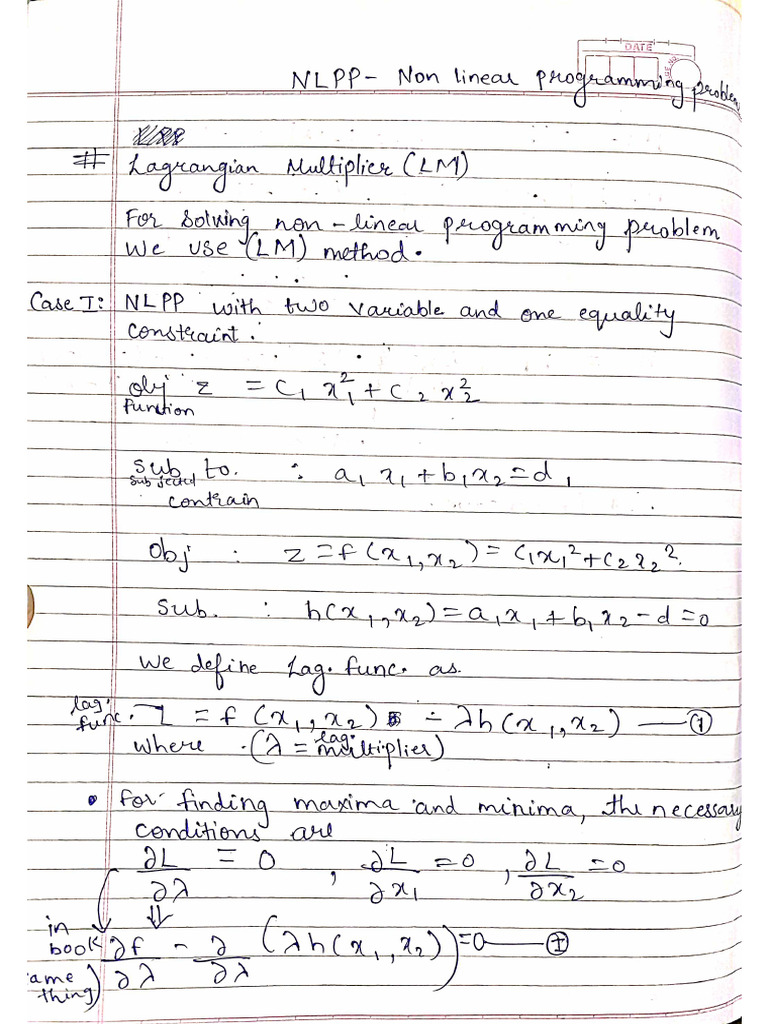 DATE
NLPP - Non linear programming problem
# Lagrangian Multiplier (LM)
For solving non-linear programming problem
we use (LM) method.
Case I: NLPP with two variable and one equality
constraint.
obj z = c₁ x₁² + c₂ x₂²
function
sub to. : a₁ x₁ + b₁ x₂ = d₁
subjected
contrain
Obj : z = f(x₁, x₂) = c₁x₁² + c₂x₂².
Sub. : h(x₁, x₂) = a₁x₁ + b₁x₂ - d = 0
we define Lag. func. as
lag. func. L = f(x₁, x₂) - λh(x₁, x₂) — ①
where (λ = lag. multiplier)
• for finding maxima and minima, the necessary
conditions are
∂L/∂λ = 0 , ∂L/∂x₁ = 0 , ∂L/∂x₂ = 0
in book ∂f/∂λ - ∂/∂λ (λh(x₁, x₂)) = 0 —
ame thing)